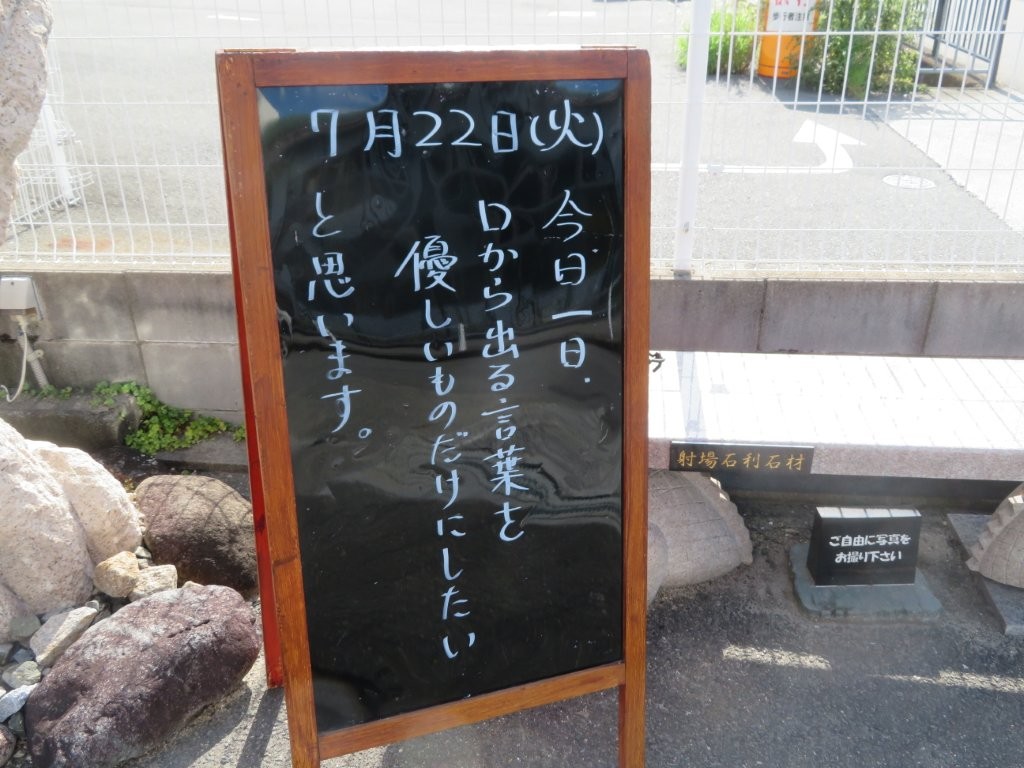 7月22日(火)
今日一日、
口から出る言葉を
優しいものだけにしたい
と思います。
射場石利石材
ご自由に写真を
お撮り下さい